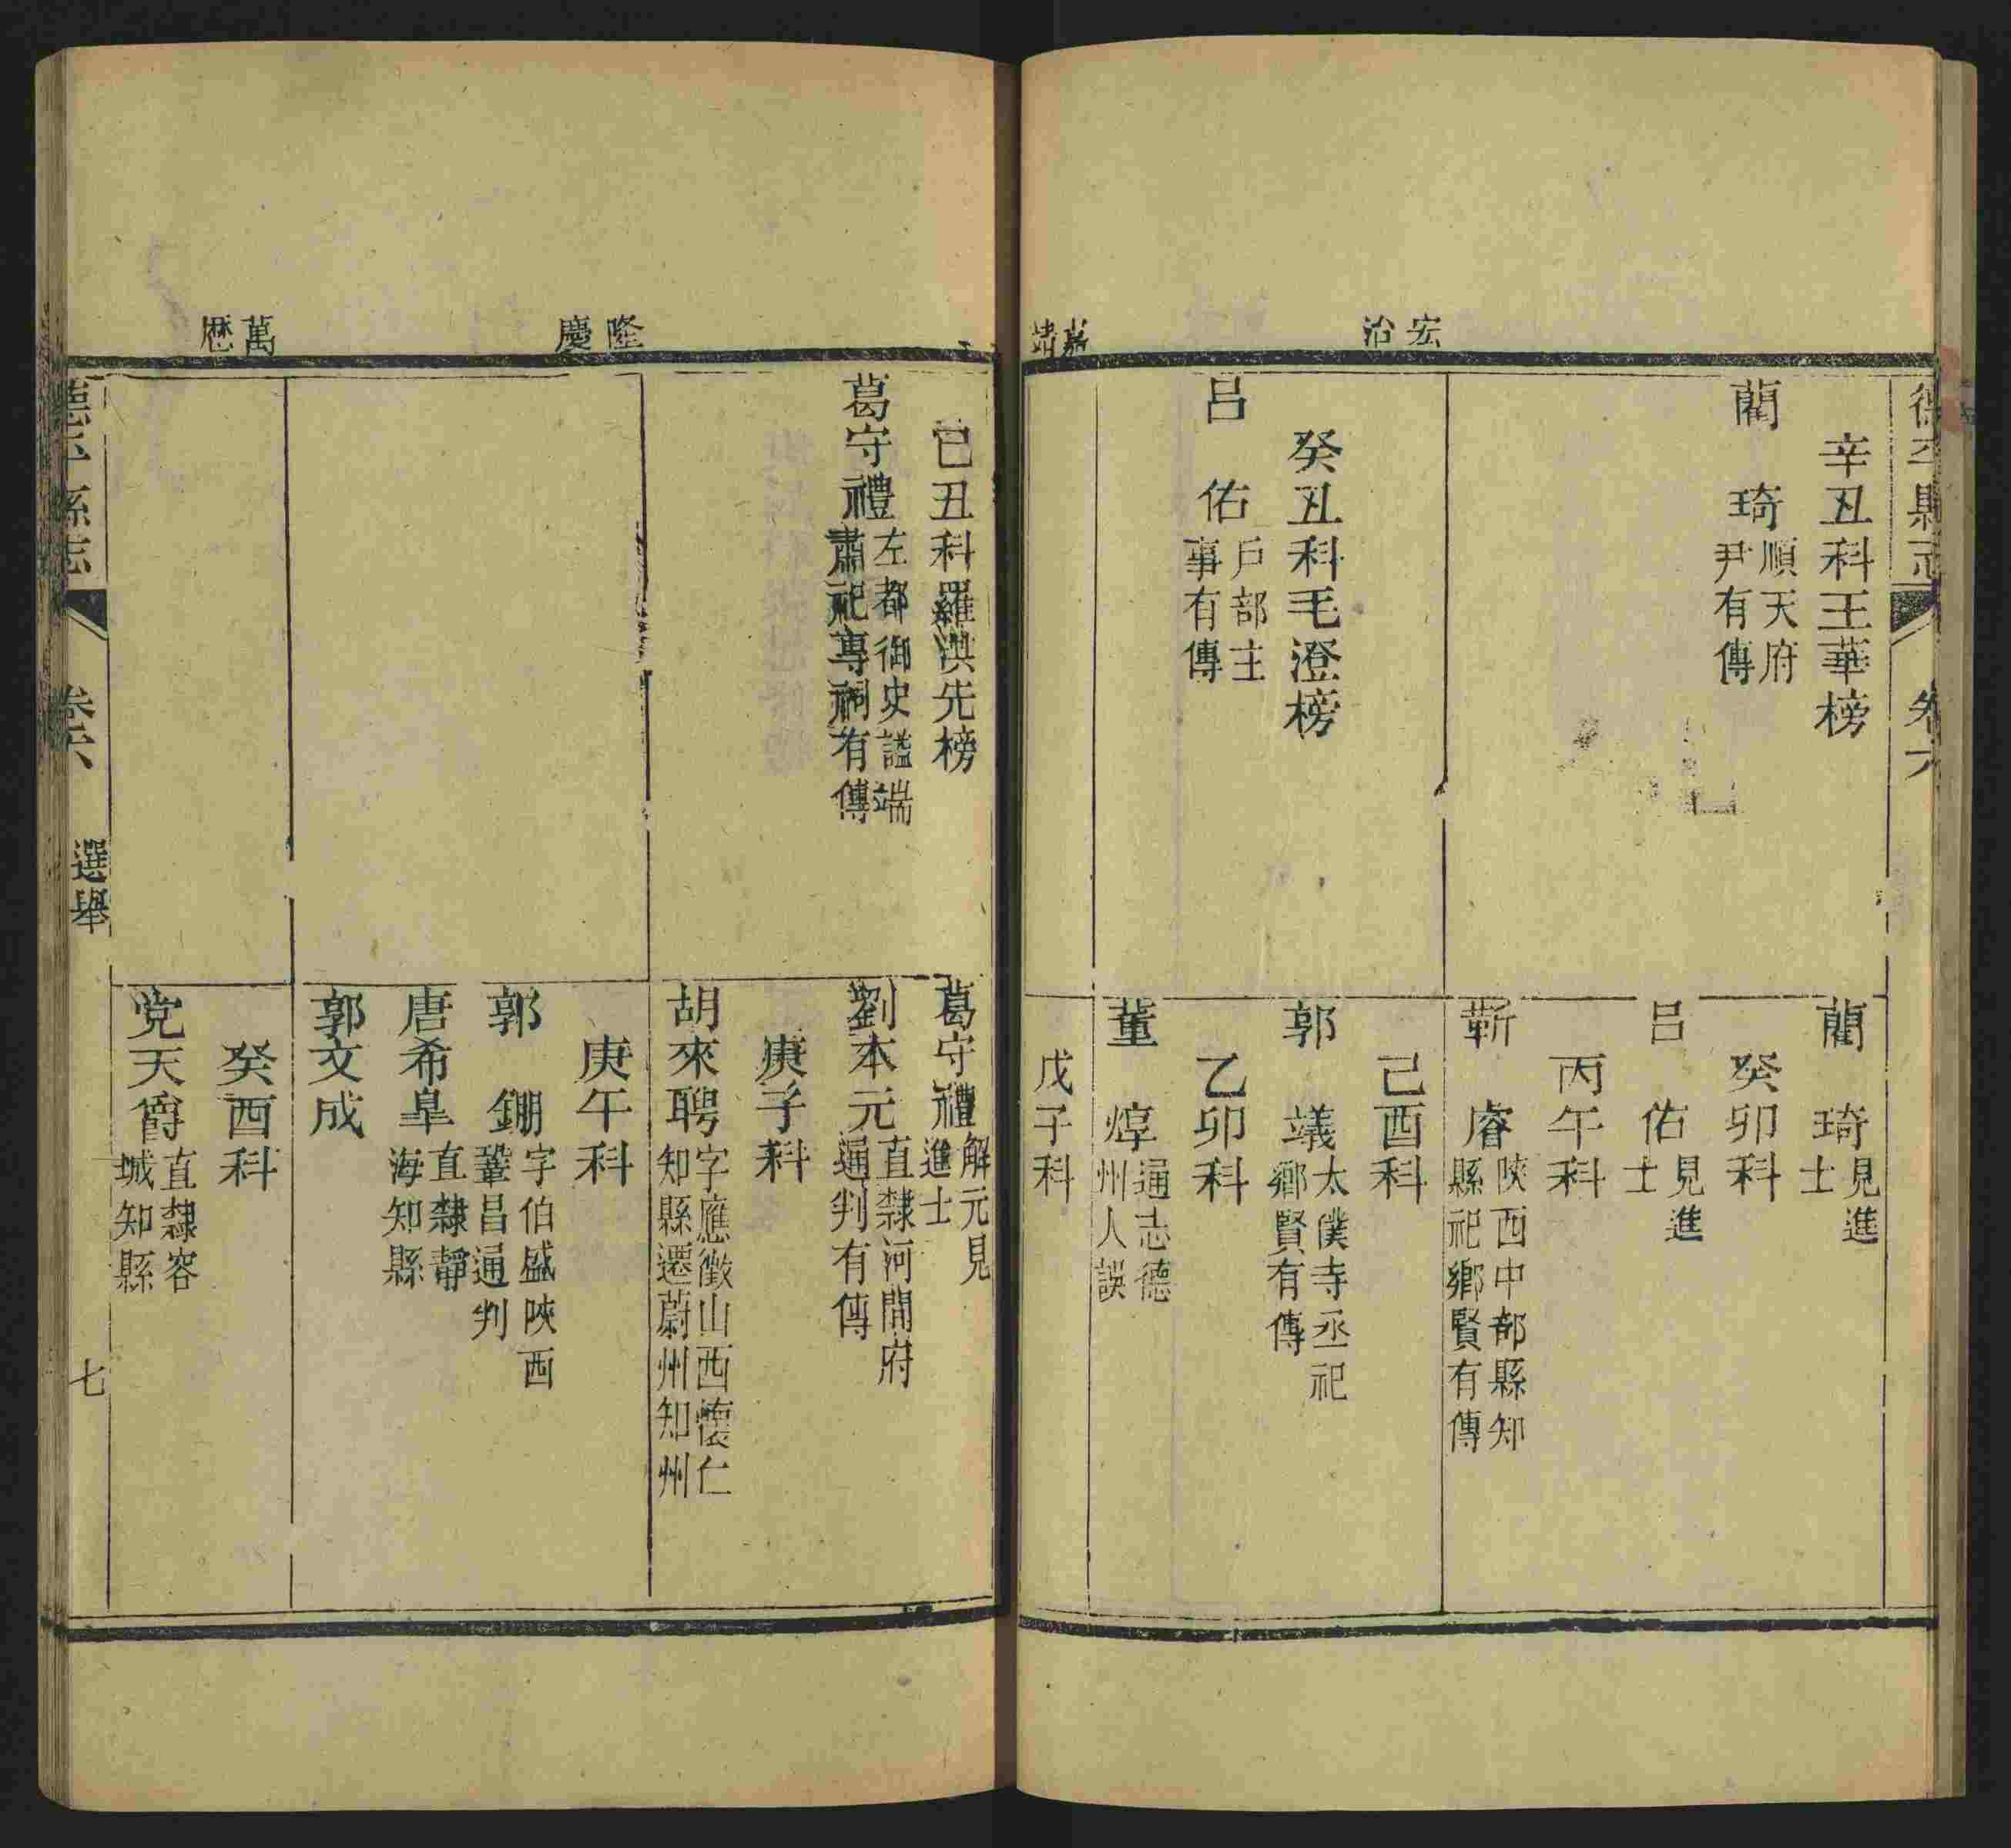 德平縣志 卷六
宏治
嘉靖
辛丑科王華榜
藺 琦 順天府
尹有傳
癸丑科毛澄榜
呂 佑 戶部主
事有傳
藺 琦 見進
士
癸卯科
呂 佑 見進
士
丙午科
靳 睿 陝西中部縣知
縣祀鄉賢有傳
己酉科
郭 𡾋 太僕寺丞祀
鄉賢有傳
乙卯科
董 焞 通志德
州人誤
戊子科
隆慶
萬歷
己丑科羅洪先榜
葛守禮 左都御史謚端
肅祀專祠有傳
葛守禮 解元見
進士
劉本元 直隸河間府
通判有傳
庚子科
胡來聘 字應徵山西懷仁
知縣遷蔚州知州
庚午科
郭 鋼 字伯盛陝西
鞏昌通判
唐希皐 直隸靜
海知縣
郭文成
癸酉科
党天爵 直隸容
城知縣
德平縣志 卷六 選舉 七